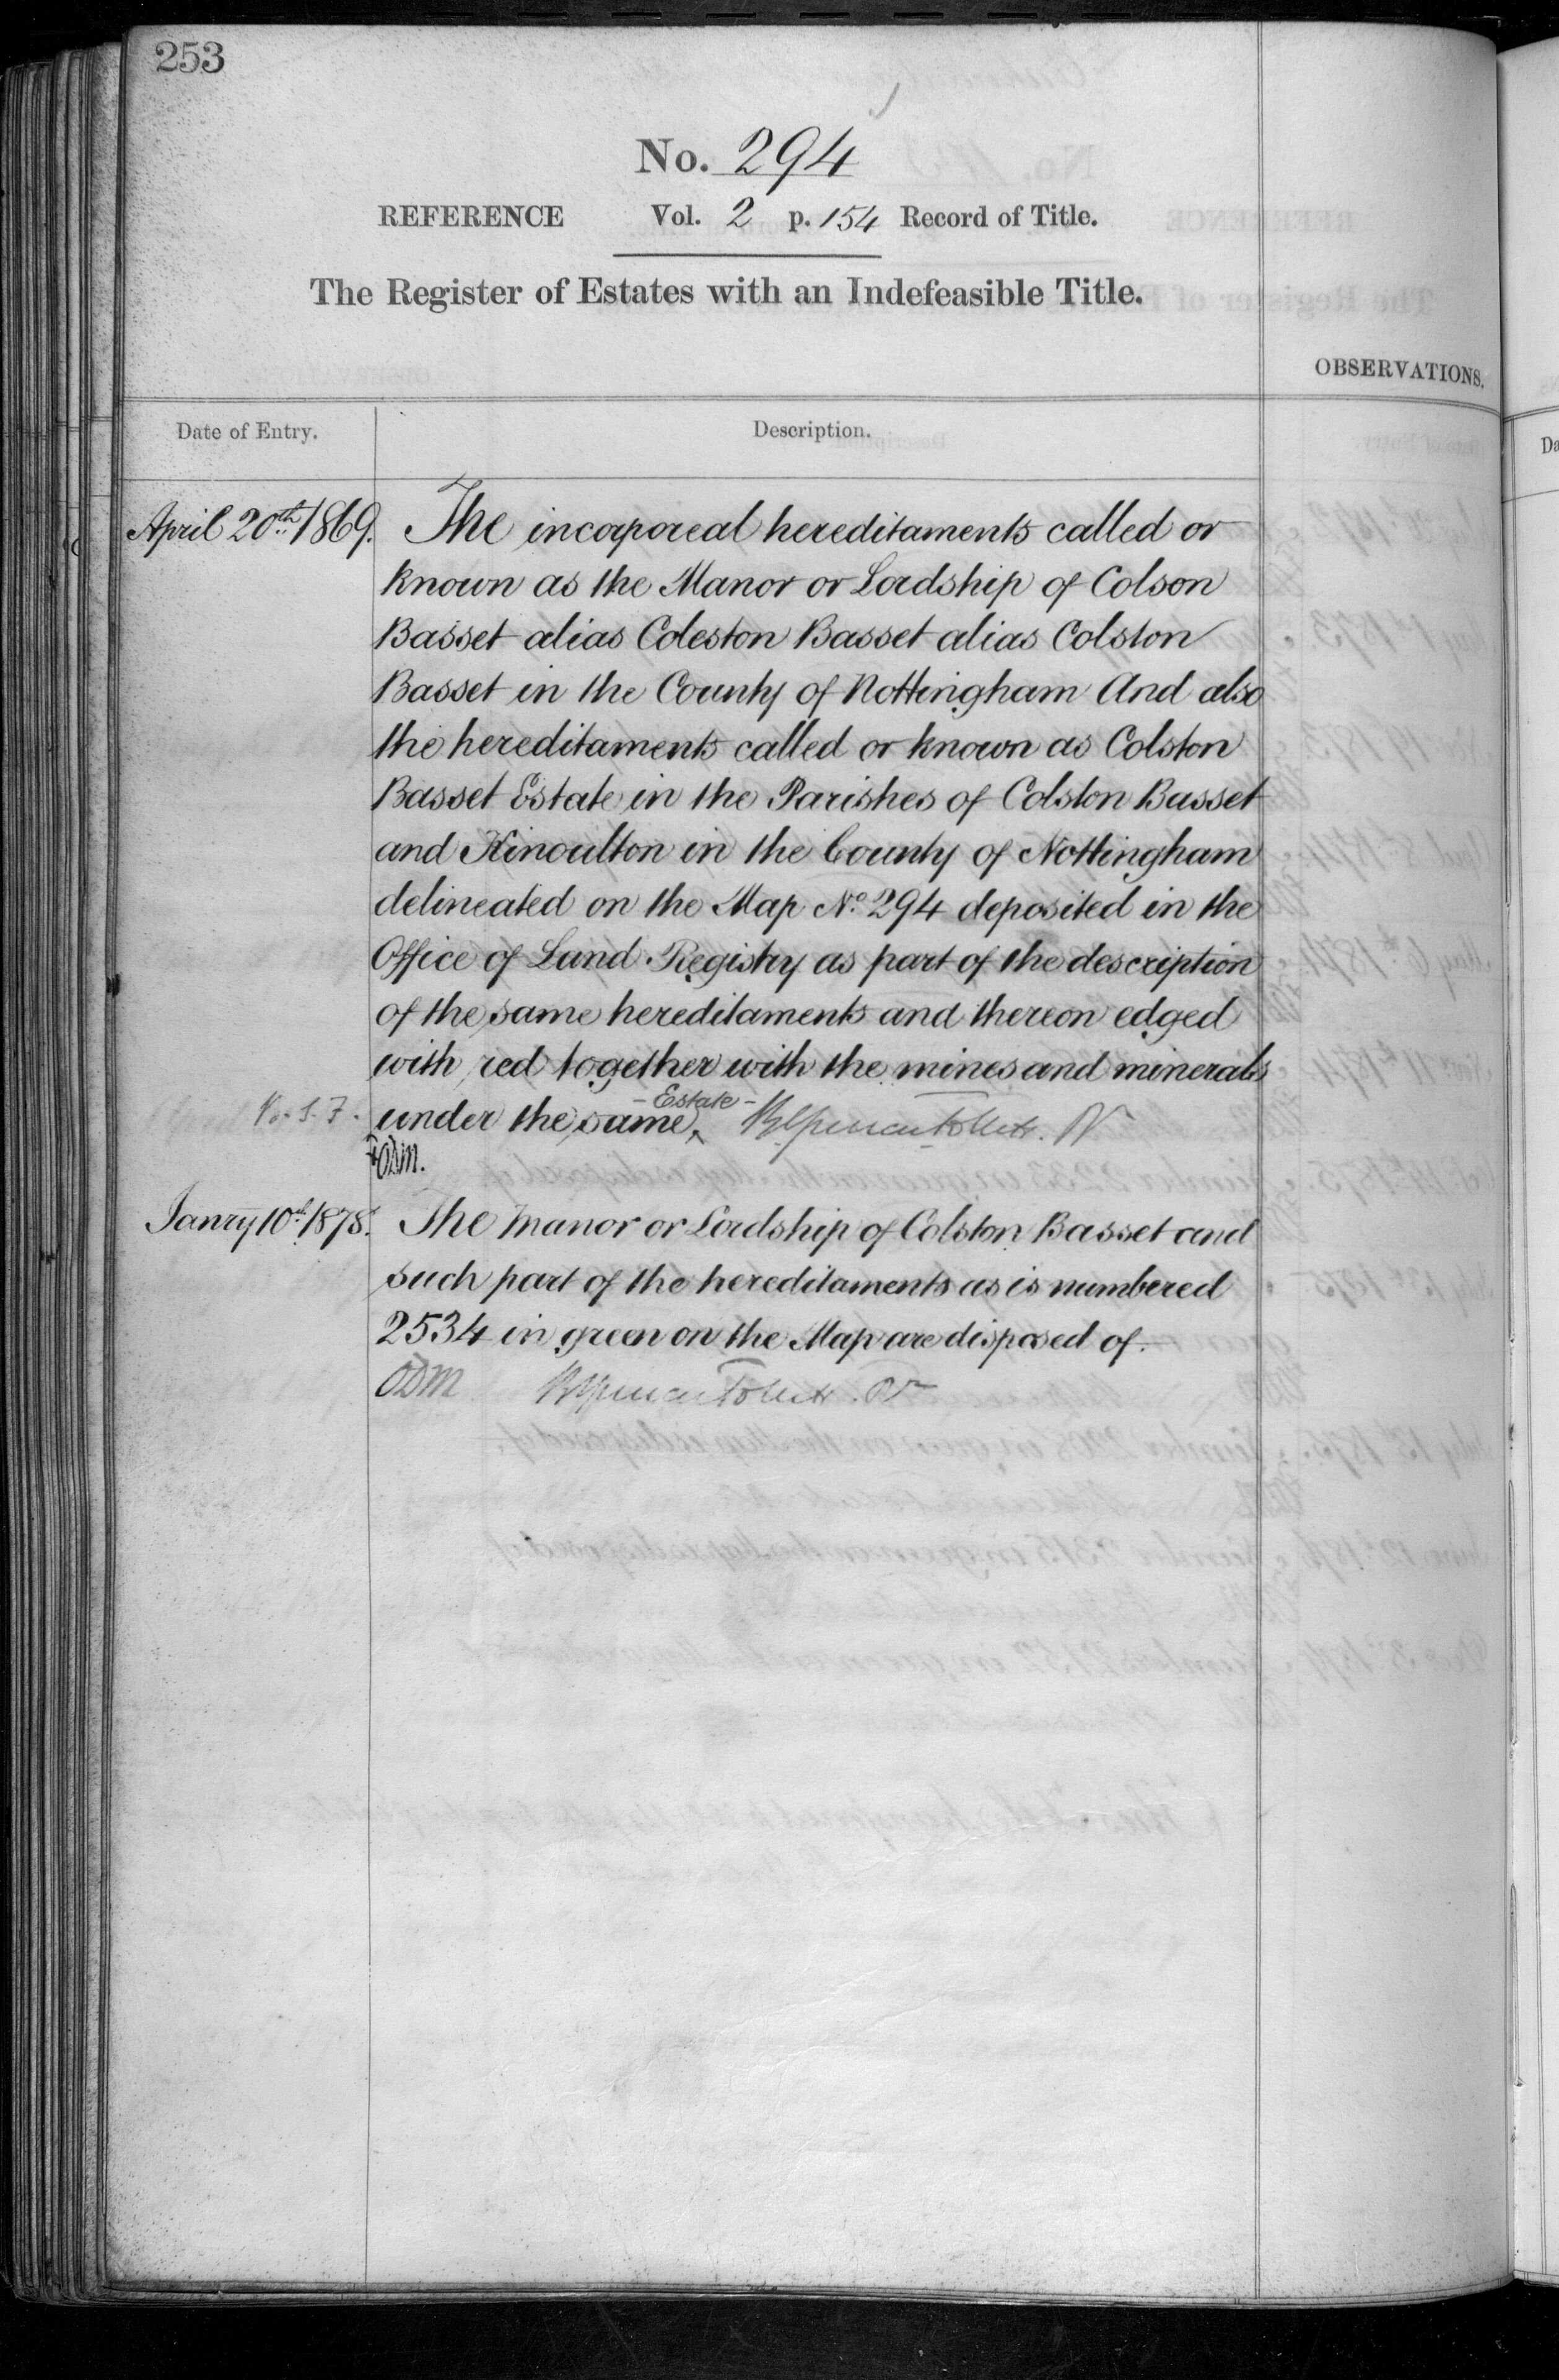 253
No. 294
REFERENCE Vol. 2 p. 154 Record of Title.
The Register of Estates with an Indefeasible Title.
OBSERVATIONS.
Date of Entry. Description.
April 20th 1869. The incorporeal hereditaments called or
known as the Manor or Lordship of Colson
Basset alias Coleston Basset alias Colston
Basset in the County of Nottingham And also
the hereditaments called or known as Colston
Basset Estate in the Parishes of Colston Basset
and Kinoulton in the County of Nottingham
delineated on the Map No. 294 deposited in the
Office of Land Registry as part of the description
of the same hereditaments and thereon edged
with red together with the mines and minerals
- Estate -
under the same
ODM.
Janry 10th 1878. The Manor or Lordship of Colston Basset and
such part of the hereditaments as is numbered
2534 in green on the Map are disposed of.
ODM